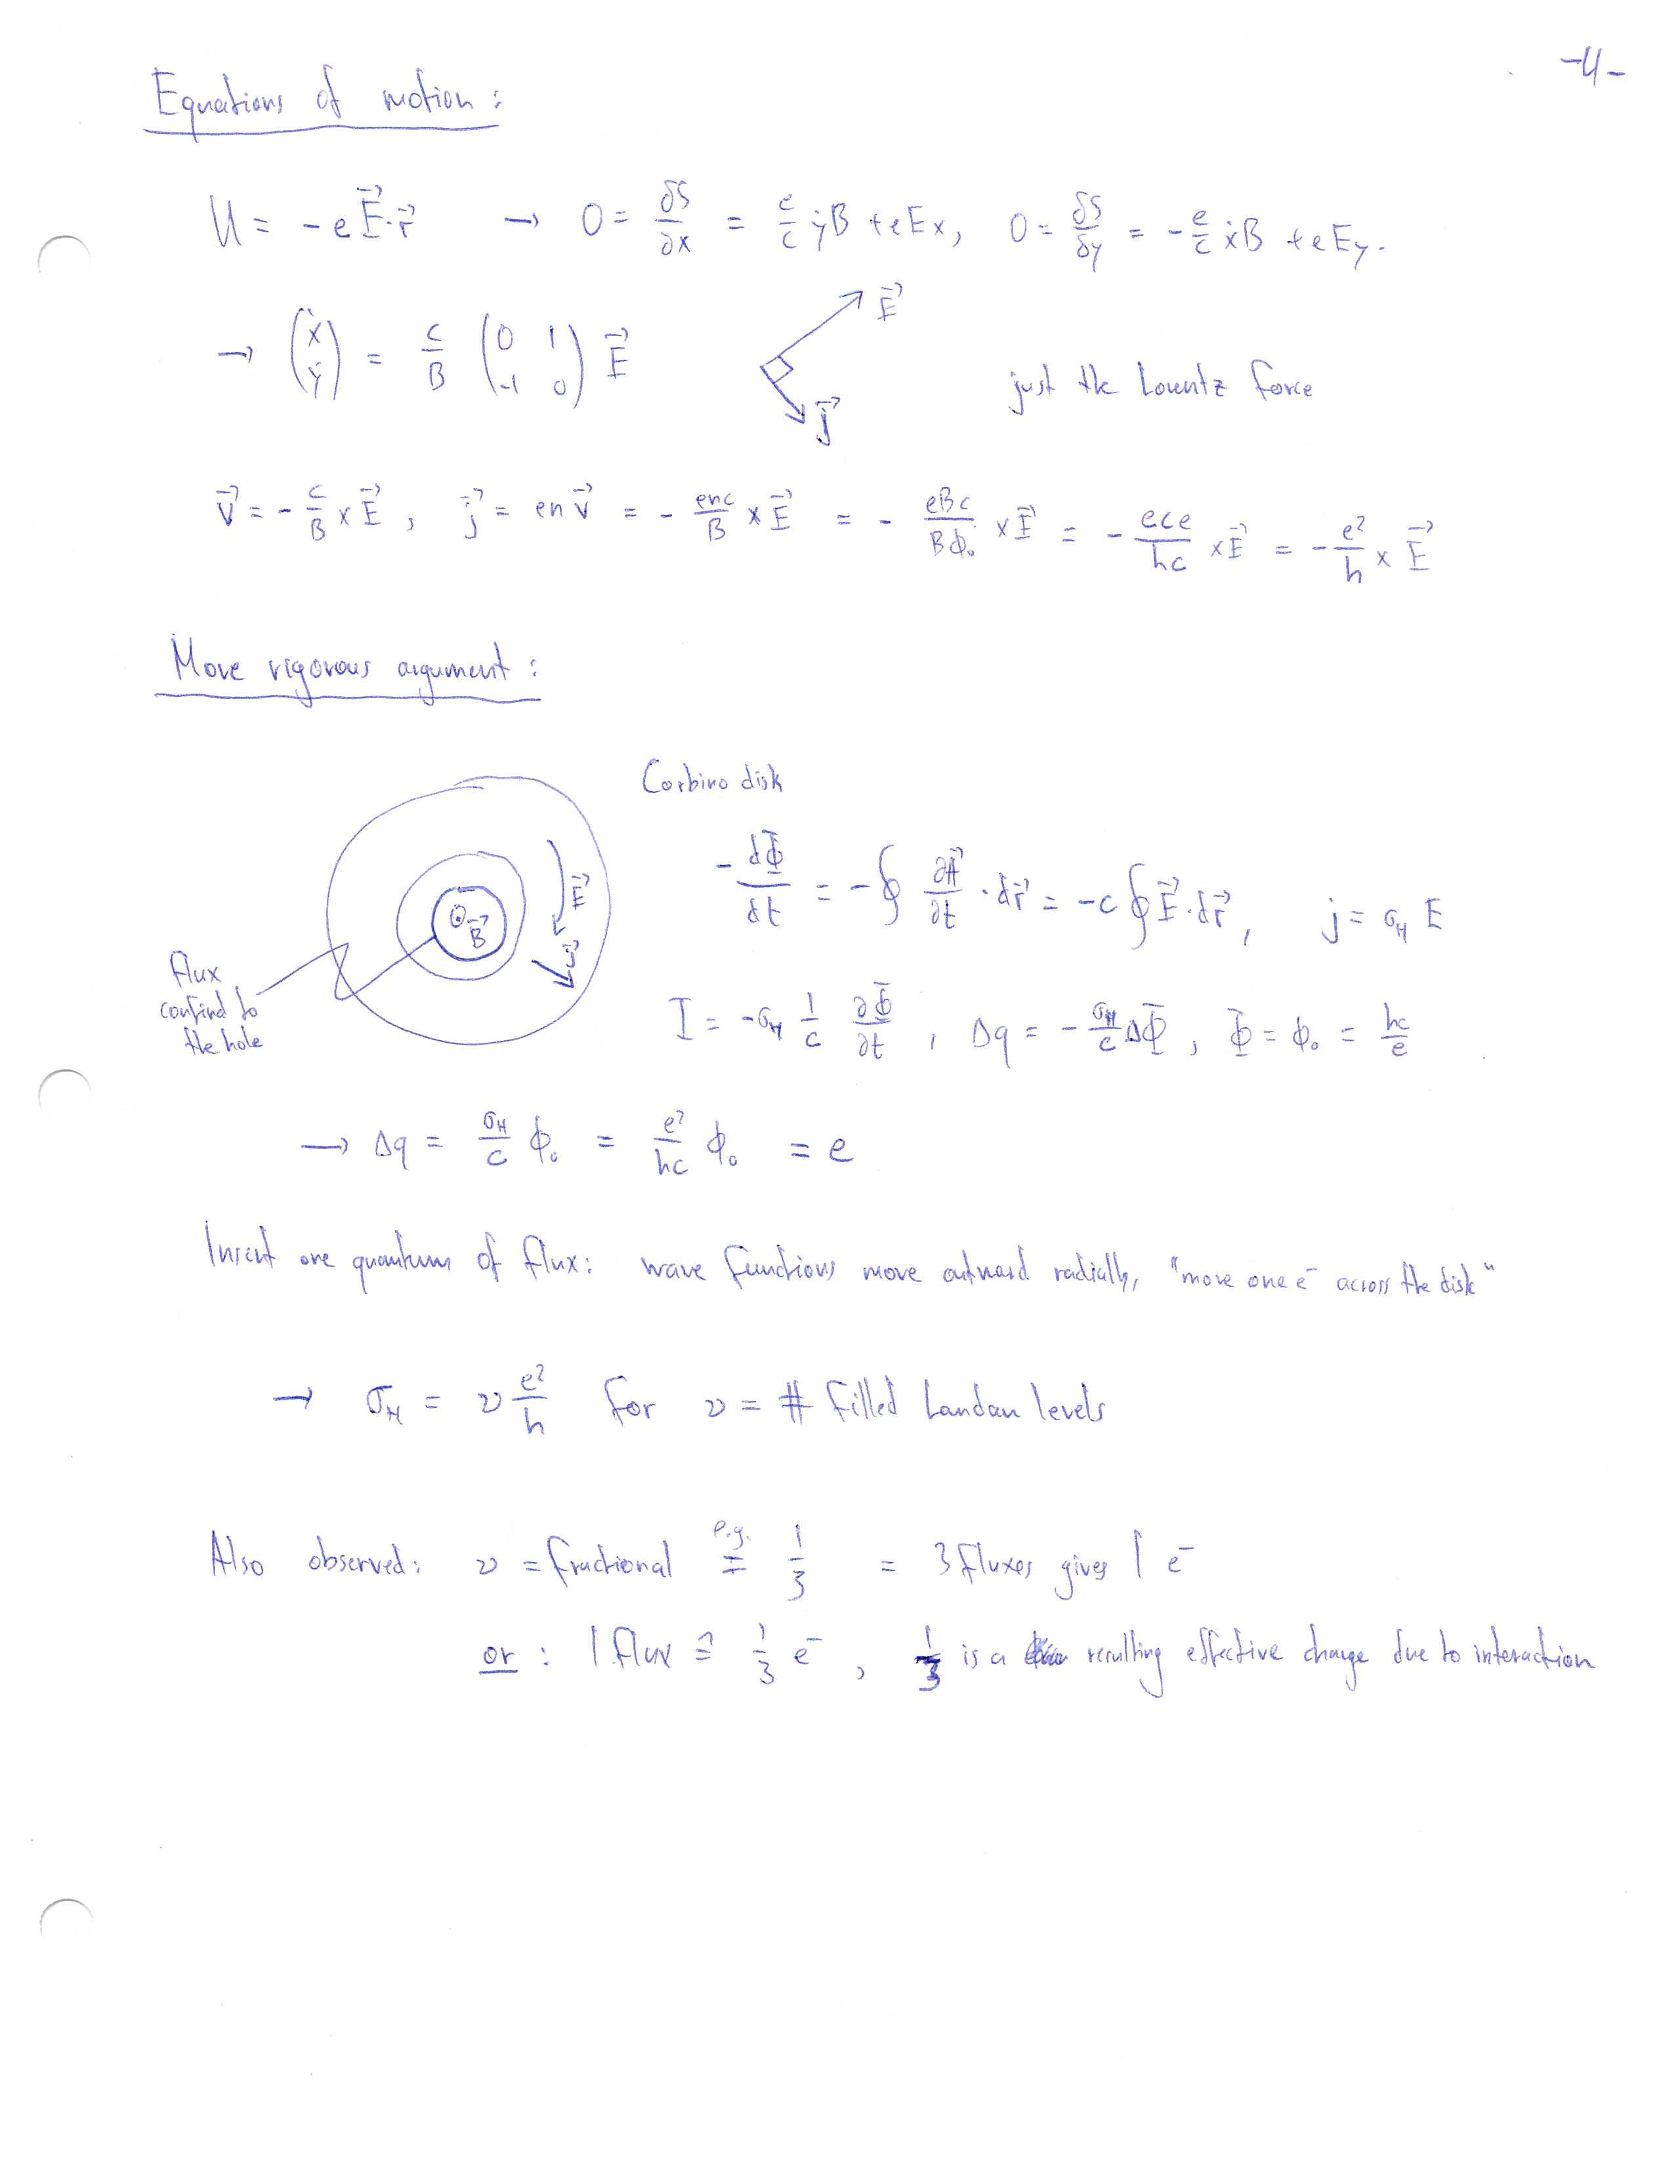 -4-
Equations of motion:
U = -e E⃗·r⃗ → 0 = δS/∂x = e/c ẏB + eEx, 0 = δS/δy = - e/c ẋB + eEy.
→ (ẋ ẏ) = c/B (0 1 -1 0) E⃗
E⃗
j⃗
just the Lorentz force
v⃗ = - c/B × E⃗, j⃗ = en v⃗ = - enc/B × E⃗ = - eBc/Bϕ₀ × E⃗ = - ece/hc × E⃗ = - e²/h × E⃗
More rigorous argument:
Corbino disk
- dΦ/dt = -∮ ∂A⃗/∂t · dr⃗ = -c ∮ E⃗·dr⃗, j = σH E
E⃗
B⃗
j⃗
flux
confind to
the hole
I = -σH 1/c ∂Φ/∂t, Δq = - σH/c ΔΦ, Φ = ϕ₀ = hc/e
→ Δq = σH/c ϕ₀ = e²/hc ϕ₀ = e
Insert one quantum of flux: wave functions move outward radially, "move one e⁻ across the disk"
→ σH = ν e²/h for ν = # filled Landau levels
Also observed: ν = fractional e.g. = 1/3 = 3 fluxes gives 1 e⁻
or: 1 flux ≙ 1/3 e⁻, 1/3 is a resulting effective charge due to interaction